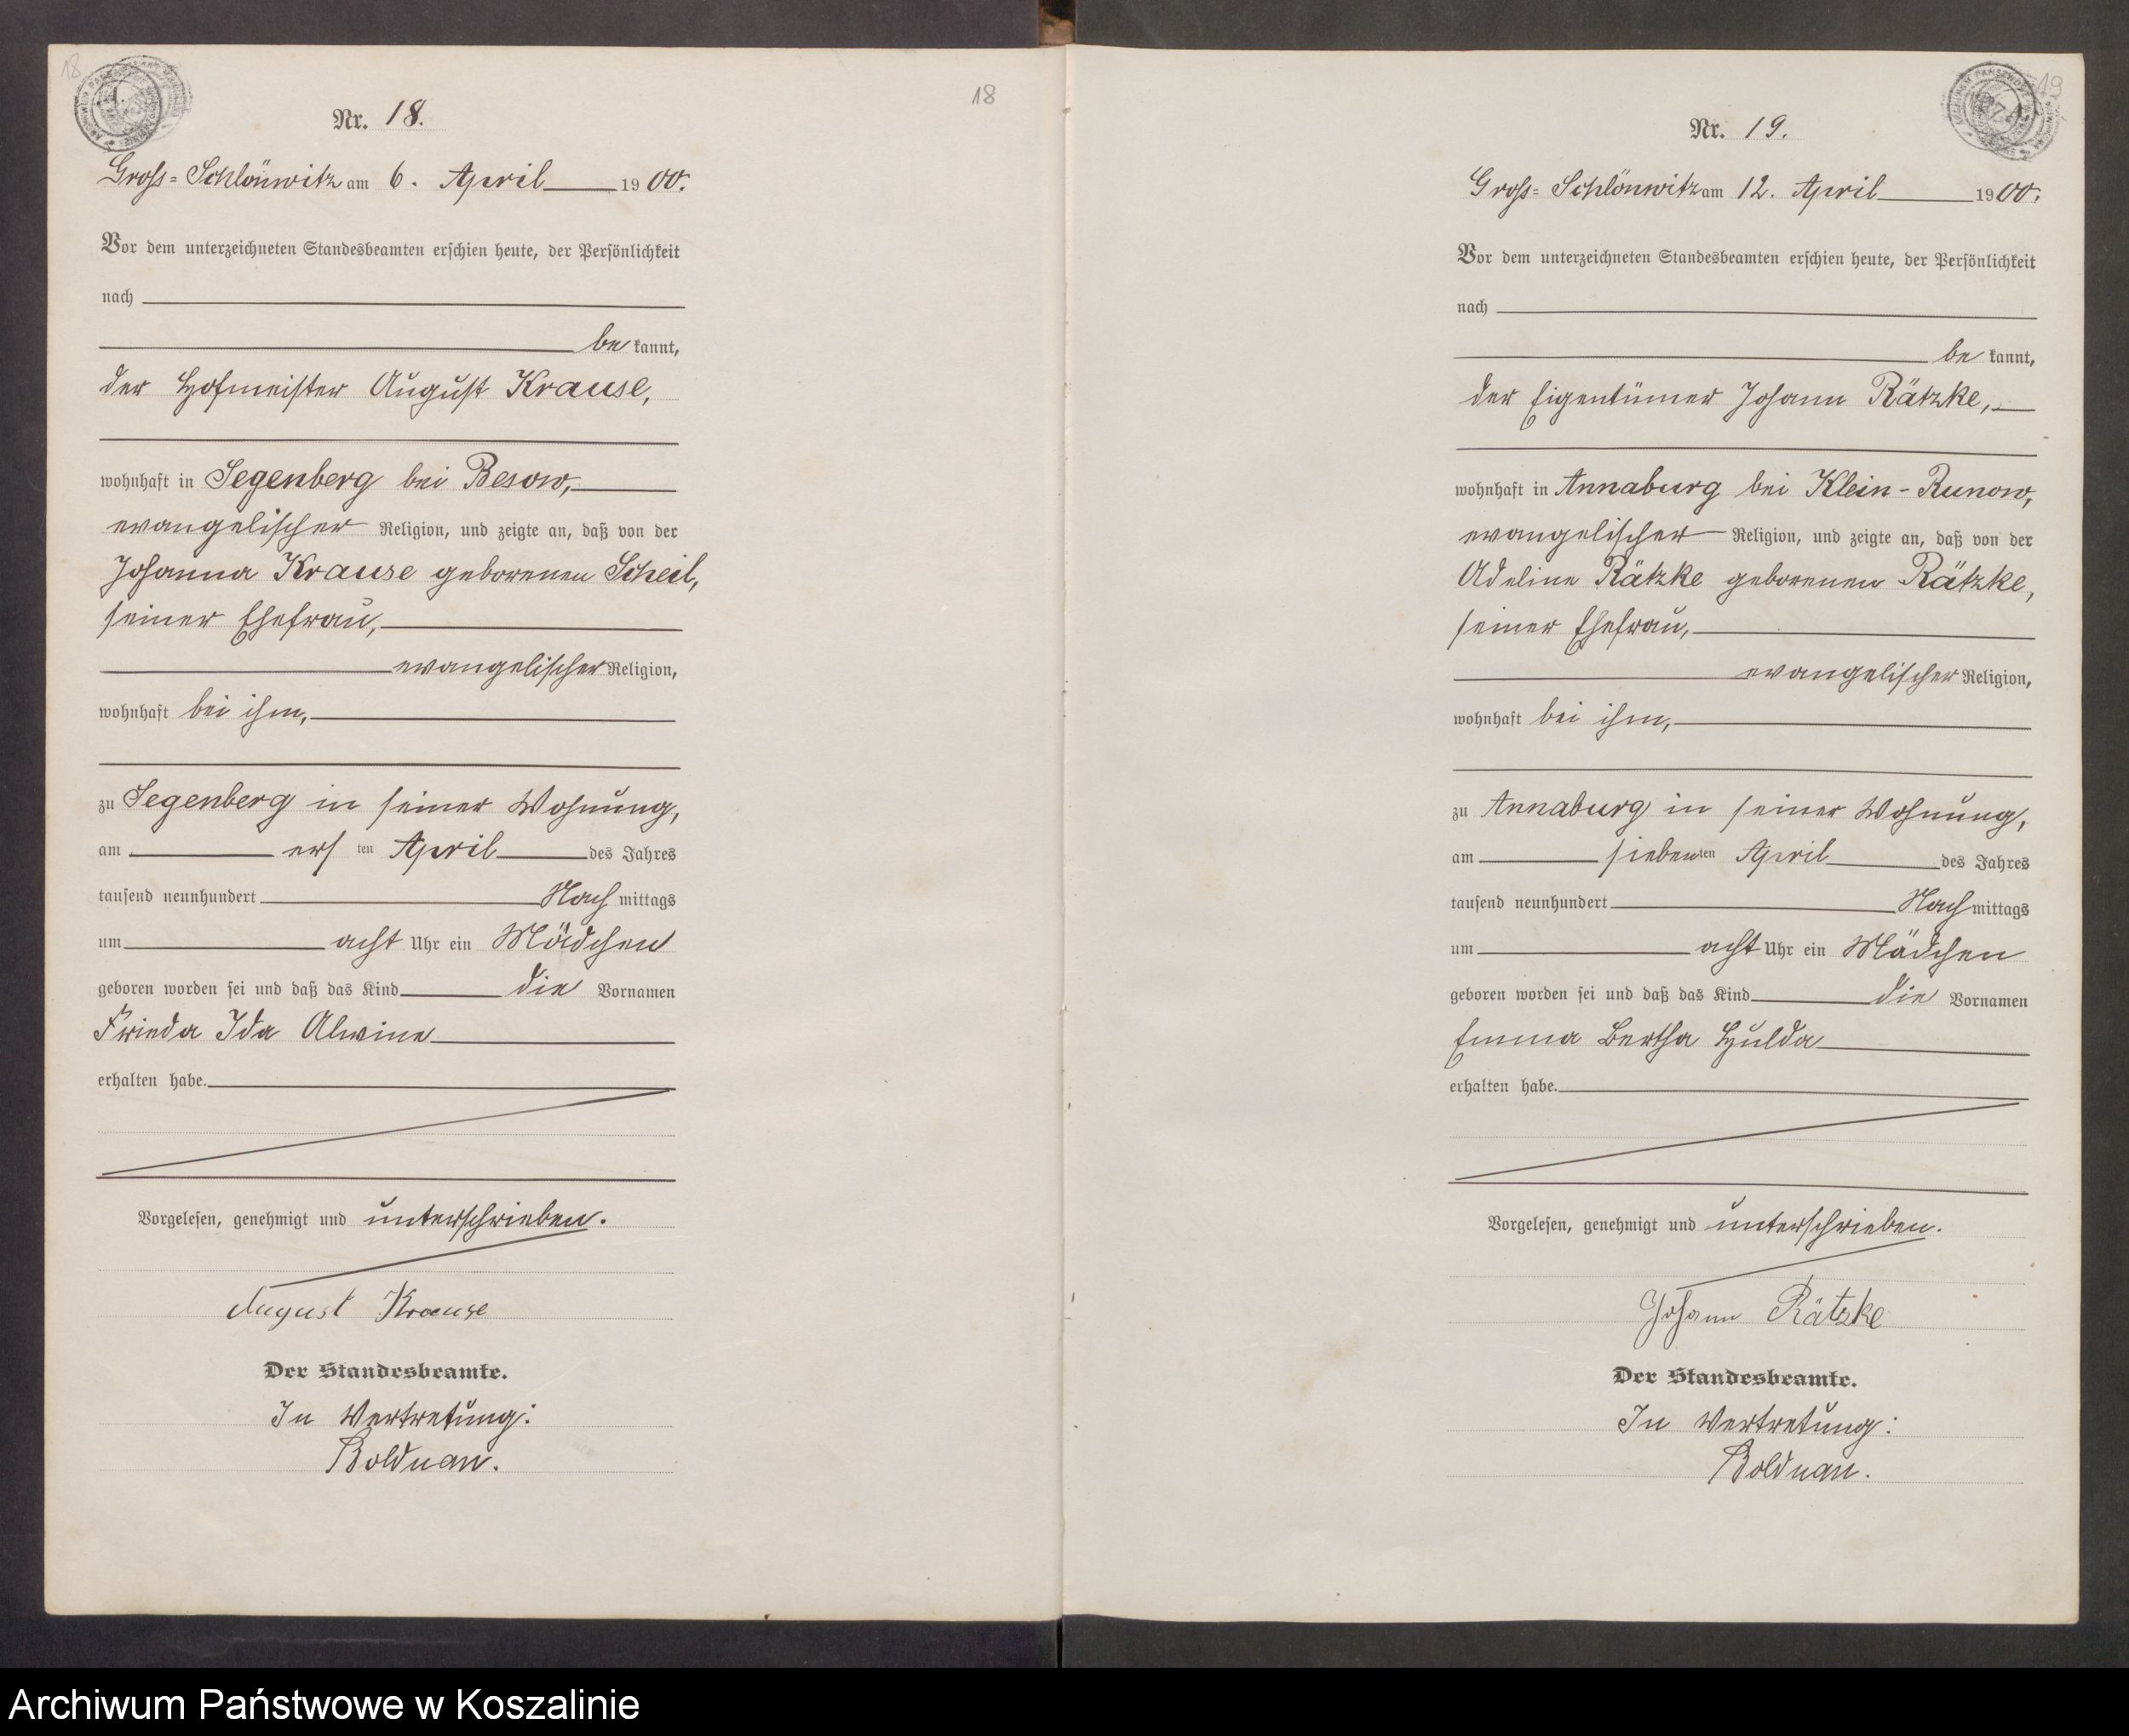 18
Nr. 18.
18
Gross-Schlönwitz am 6. April 1900.
Vor dem unterzeichneten Standesbeamten erschien heute, der Persönlichkeit
nach
be kannt,
der Hofmeister August Krause,
wohnhaft in Segenberg bei Besow,
evangelischer Religion, und zeigte an, daß von der
Johanna Krause geborenen Scheil,
seiner Ehefrau,
evangelischer Religion,
wohnhaft bei ihm,
zu Segenberg in seiner Wohnung,
am ersten April des Jahres
tausend neunhundert Nachmittags
um acht Uhr ein Mädchen
geboren worden sei und daß das Kind die Vornamen
Frieda Ida Alwine
erhalten habe.
Vorgelesen, genehmigt und unterschrieben.
August Krause
Der Standesbeamte.
In Vertretung:
Bolduan.
19
Nr. 19.
Gross-Schlönwitz am 12. April 1900.
Vor dem unterzeichneten Standesbeamten erschien heute, der Persönlichkeit
nach
be kannt,
der Eigentümer Johann Rätzke,
wohnhaft in Annaburg bei Klein-Runow,
evangelischer Religion, und zeigte an, daß von der
Adeline Rätzke geborenen Rätzke,
seiner Ehefrau,
evangelischer Religion,
wohnhaft bei ihm,
zu Annaburg in seiner Wohnung,
am siebenten April des Jahres
tausend neunhundert Nachmittags
um acht Uhr ein Mädchen
geboren worden sei und daß das Kind die Vornamen
Emma Bertha Hulda
erhalten habe.
Vorgelesen, genehmigt und unterschrieben.
Johann Rätzke
Der Standesbeamte.
In Vertretung:
Bolduan.
Archiwum Państwowe w Koszalinie